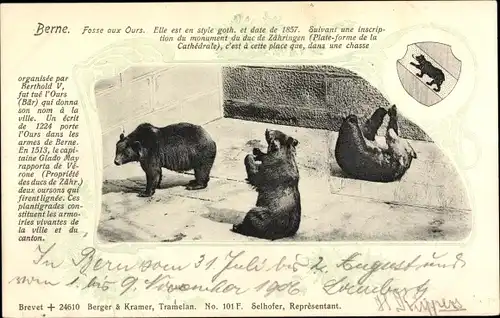 Berne. Fosse aux Ours. Elle est en style goth. et date de 1857. Suivant une inscrip-
tion du monument du duc de Zähringen (Plate-forme de la
Cathédrale), c'est à cette place que, dans une chasse
organisée par
Berthold V,
fut tué l'Ours
(Bär) qui donna
son nom à la
ville. Un écrit
de 1224 porte
l'Ours dans les
armes de Berne.
En 1513, le capi-
taine Glado May
rapporta de Vé-
rone (Propriété
des ducs de Zähr.)
deux oursons qui
firent lignée. Ces
plantigrades con-
stituent les armoi-
ries vivantes de
la ville et du
canton.
In Bern vom 31 Juli bis 2. August und
vom 1 bis 9. November 1906
Brevet + 24610 Berger & Kramer, Tramelan. No. 101 F. Selhofer, Représentant.